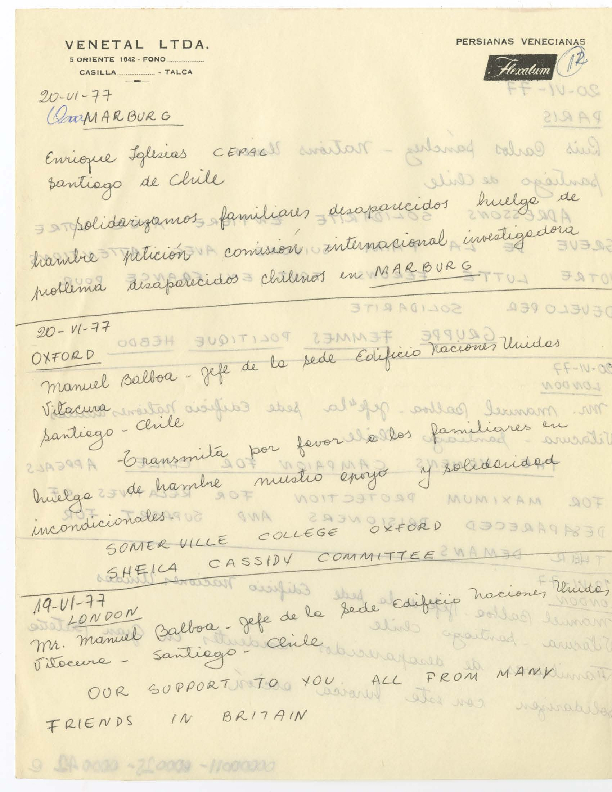 VENETAL LTDA.
5 ORIENTE 1642 - FONO
CASILLA - TALCA
PERSIANAS VENECIANAS
Flexalum
12
20-VI-77
MARBURG
Enrique Iglesias CEPAL
Santiago de Chile
Solidarizamos familiares desaparecidos huelga de
hambre petición comisión internacional investigadora
problema desaparecidos chilenos en MARBURG
20-VI-77
OXFORD
Manuel Balboa - Jefe de la Sede Edificio Naciones Unidas
Vitacura
Santiago - Chile
Transmita por favor a los familiares en
huelga de hambre nuestro apoyo y solidaridad
incondicionales
SOMERVILLE COLLEGE OXFORD
SHEILA CASSIDY COMMITTEE
19-VI-77
LONDON
Mr. Manuel Balboa - Jefe de la Sede Edificio Naciones Unidas
Vitacura - Santiago - Chile
OUR SUPPORT TO YOU ALL FROM MANY
FRIENDS IN BRITAIN